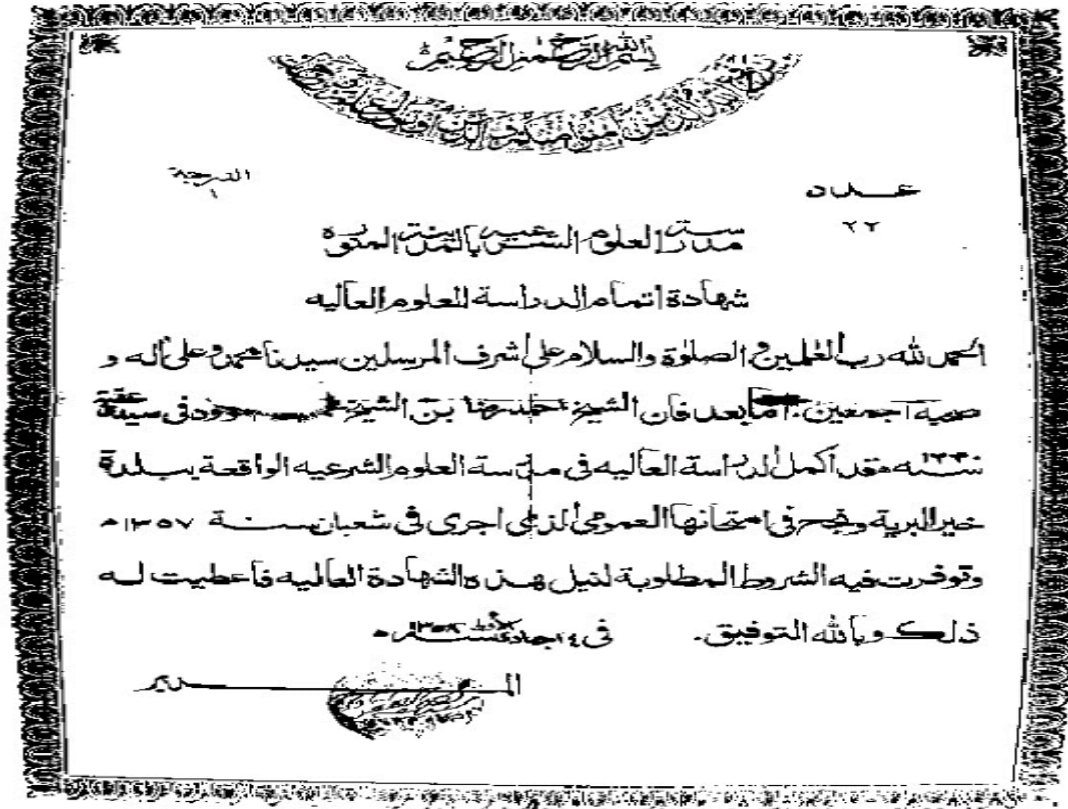 بسم الله الرحمن الرحيم
يرفع الله الذين آمنوا منكم والذين أوتوا العلم درجات
عدد
٢٢
الدرجة
١
مدرسة العلوم الشرعية بالمدينة المنورة
شهادة اتمام الدراسة للعلوم العاليه
الحمد لله رب العٰلمين و الصلوٰة والسلام على اشرف المرسلين سيدنا محمد وعلى آله و
صحبه اجمعين. اما بعد فان الشيخ احمد رضا بن الشيخ في سيدي عقبة
سنه ه قد اكمل الدراسة العاليه في مدرسة العلوم الشرعيه الواقعة ببلدة
خير البرية ونجح في امتحانها العمومي الذي اجرى في شعبان سنة ١٣٥٧ه
وتوفرت فيه الشروط المطلوبة لنيل هذه الشهادة العاليه فاعطيت له
ذلك وبالله التوفيق. في ١٤ جماد ١٣٥٨ه
المدير